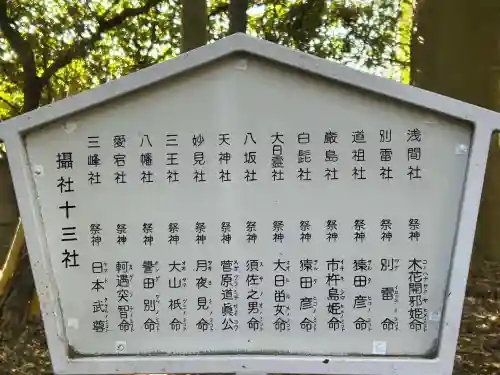 浅間社 祭神 木花開邪姫命
別雷社 祭神 別雷命
道祖社 祭神 猿田彦命
厳島社 祭神 市杵島姫命
白髭社 祭神 猿田彦命
大日霊社 祭神
八坂社 祭神 須佐之男命
天神社 祭神 菅原道眞公
妙見社 祭神 月夜見命
三王社 祭神 大山祇命
八幡社 祭神 譽田別命
愛宕社 祭神 軻遇突智命
三峰社 祭神 日本武尊
攝社十三社